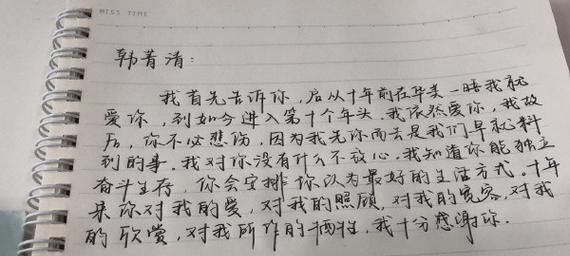 MISS TIME
韩菁清:
我首先告诉你,启从十年前在华美一晤我就
爱你,到如今进入第十个年头,我依然爱你,我故
后,你不必悲伤,因为我先你而去是我们早就料
到的事。我对你没有什么不放心,我知道你能独立
奋斗生存,你会安排你认为最好的生活方式。十年
来你对我的爱,对我的照顾,对我的宽容,对我
的欣赏,对我所作的牺牲,我十分感谢你.